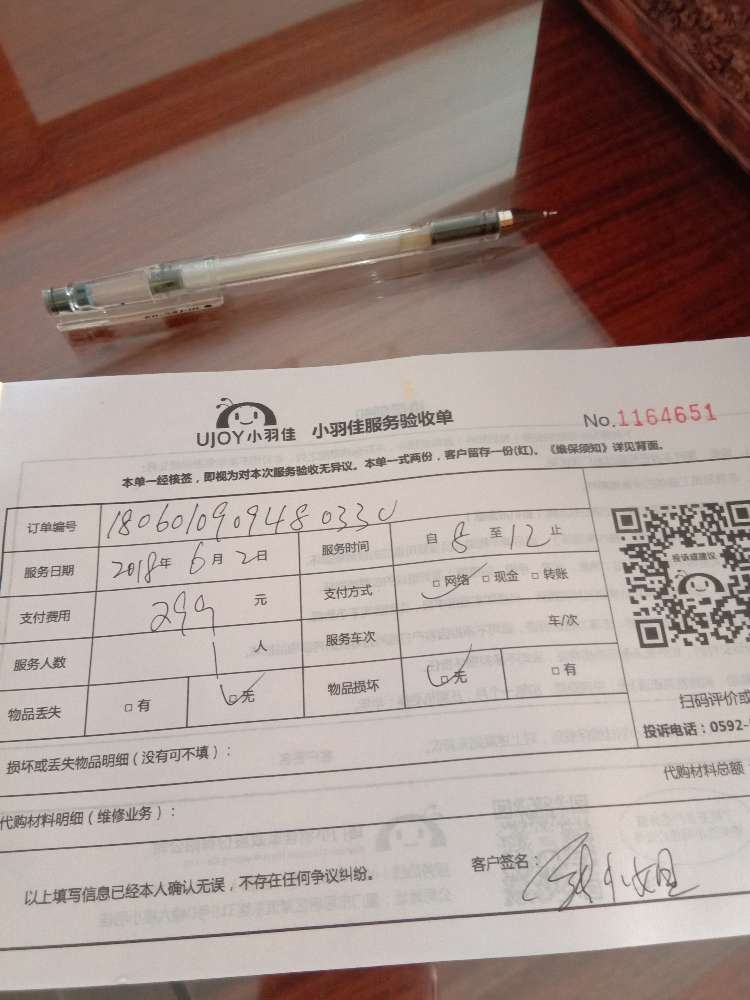 UJOY小羽佳 小羽佳服务验收单 No.1164651
本单一经核签，即视为对本次服务验收无异议。本单一式两份，客户留存一份(红)。《维保须知》详见背面。
订单编号 180601090948033
服务日期 2018年 6月 2日 服务时间 自 8 至 12 止
支付费用 299 元 支付方式 □网络 □现金 □转账
服务人数 1 人 服务车次 车/次
物品丢失 □有 □无 物品损坏 □无 □有
投诉或建议
扫码评价或
投诉电话：0592-
损坏或丢失物品明细（没有可不填）：
代购材料明细（维修业务）： 代购材料总额：
以上填写信息已经本人确认无误，不存在任何争议纠纷。 客户签名： 小姐